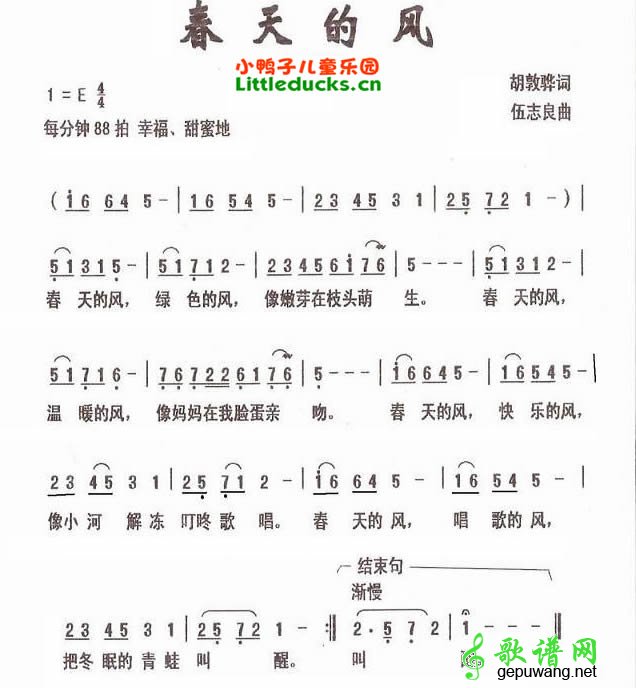 春天的风
小鸭子儿童乐园
Littleducks.cn
1=E 4/4
胡敦骅词
每分钟88拍 幸福、甜蜜地
伍志良曲
(i6 645-|i6 645-|23 45 3 1|25 72 1-)|
51315-|51712-|23456i76|5---|51315-|
春 天的风, 绿 色的风, 像嫩芽在枝头萌 生。 春 天的风,
51716-|767226176|5---|i6645-|i6645-|
温 暖的风, 像妈妈在我脸蛋亲 吻。 春 天的风, 快 乐的风,
23 45 3 1|25 71 2-|i6 64 5-|i6 54 5-|
像小 河 解 冻 叮咚 歌 唱。 春 天的 风, 唱 歌的 风,
结束句
渐慢
23 45 3 1|25 72 1-:‖2·5 7 2|i--‖
把冬 眠的 青 蛙 叫 醒。 叫
歌谱网
gepuwang.net